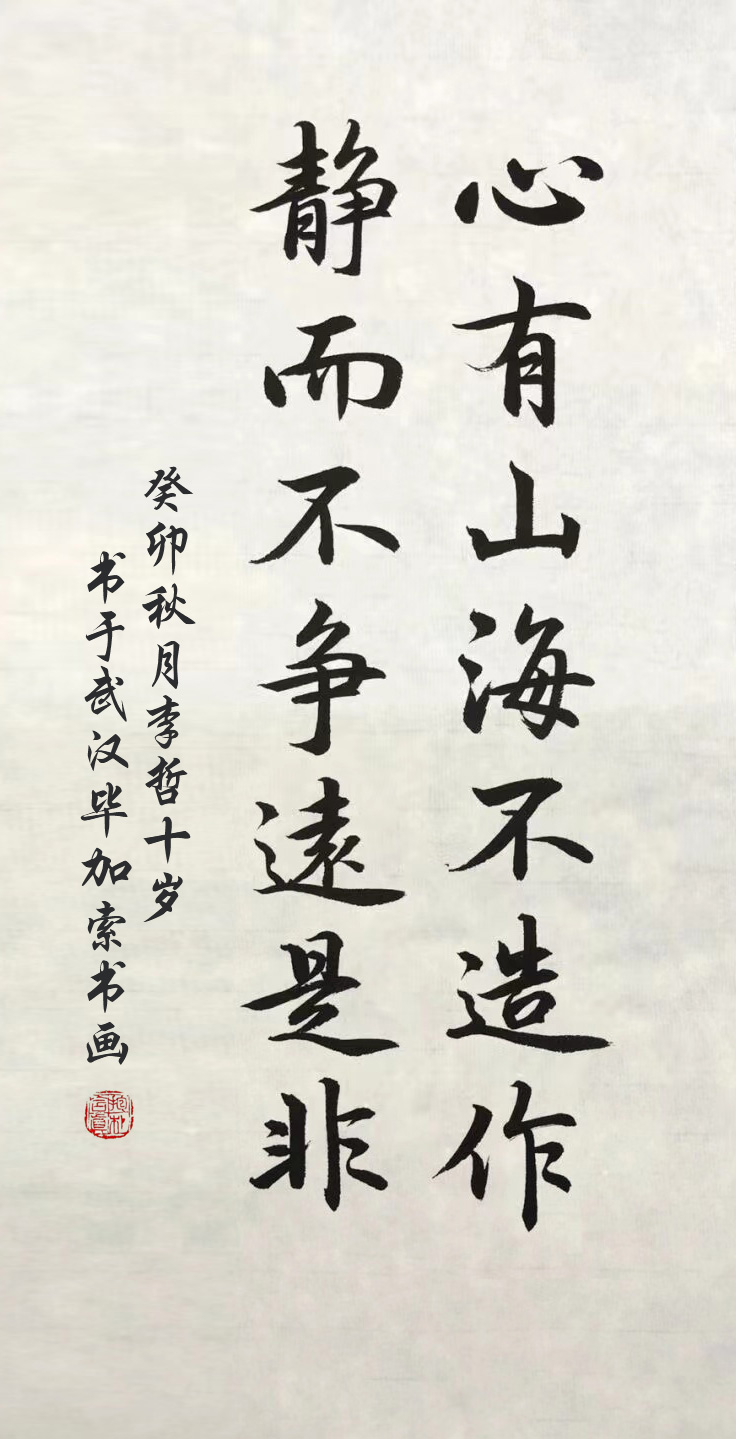 心有山海不造作
静而不争遠是非
癸卯秋月李哲十岁
书于武汉毕加索书画